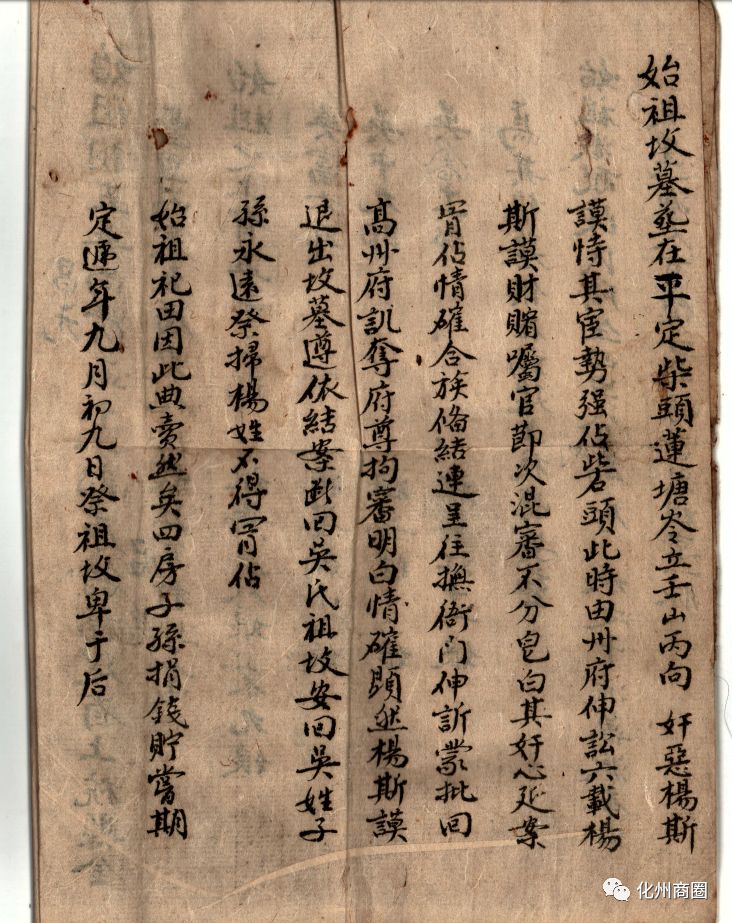 始祖坟墓葬在平定柴頭蓮塘岺立壬山丙向 奸惡楊斯
謨恃其宦勢强佔砦頭此時由州府伸訟六載楊
斯謨財賭囑官節次混審不分皂白其奸心延案
冐佔情確合族俻結連呈往撫衙门伸訴蒙批回
髙州府訊奪府尊拘審明白情確顕然楊斯謨
退出坟墓遵依結案斷回吴氏祖坟安回吴姓子
孫永遠祭掃楊姓不得冐佔
始祖祀田因此典賣然矣四房子孫捐錢貯當期
定遞年九月初九日祭祖坟卑于后
化州商圈